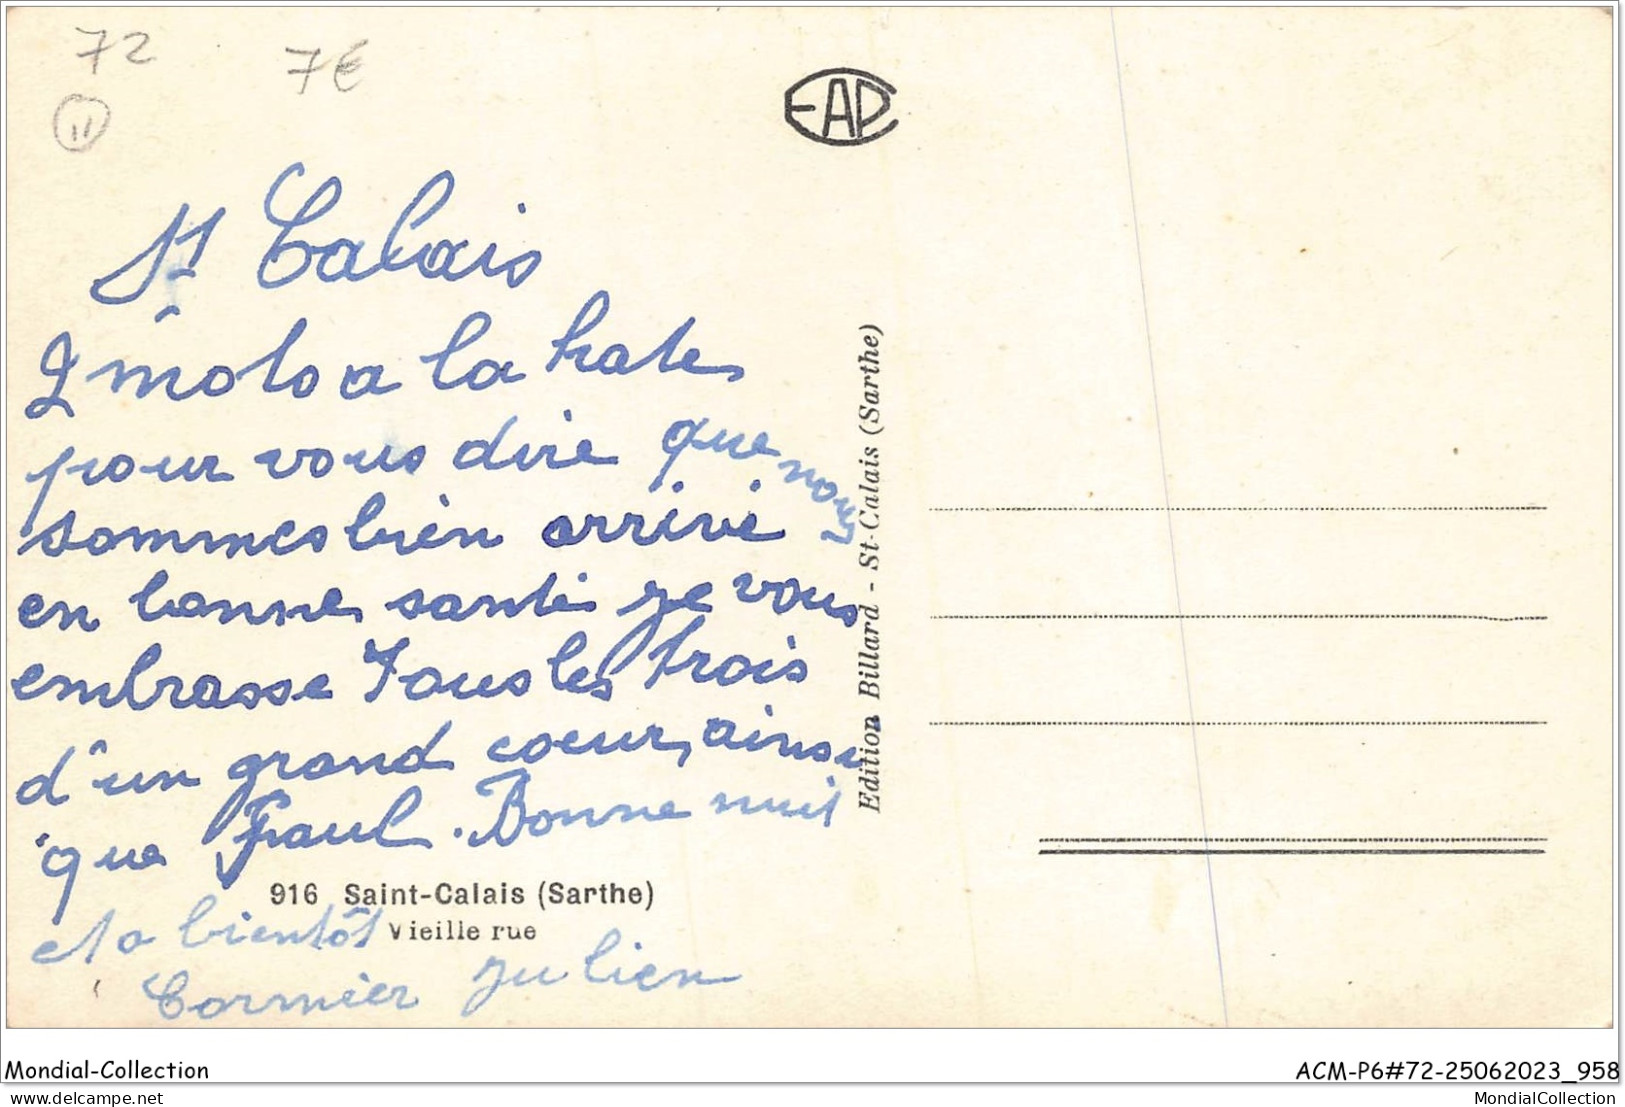 72
7€
11
EAPC
St Calais
2 mots a la hate
pour vous dire que nous
sommes bien arrivé
en bonne santé je vous
embrasse Tous les trois
d'un grand coeur, ainsi
que Paul. Bonne nuit
916 Saint-Calais (Sarthe)
Vieille rue
et a bientôt
Cormier Julien
Edition Billard - St-Calais (Sarthe)
Mondial-Collection
ACM-P6#72-25062023_958
delcampe.net
MondialCollection